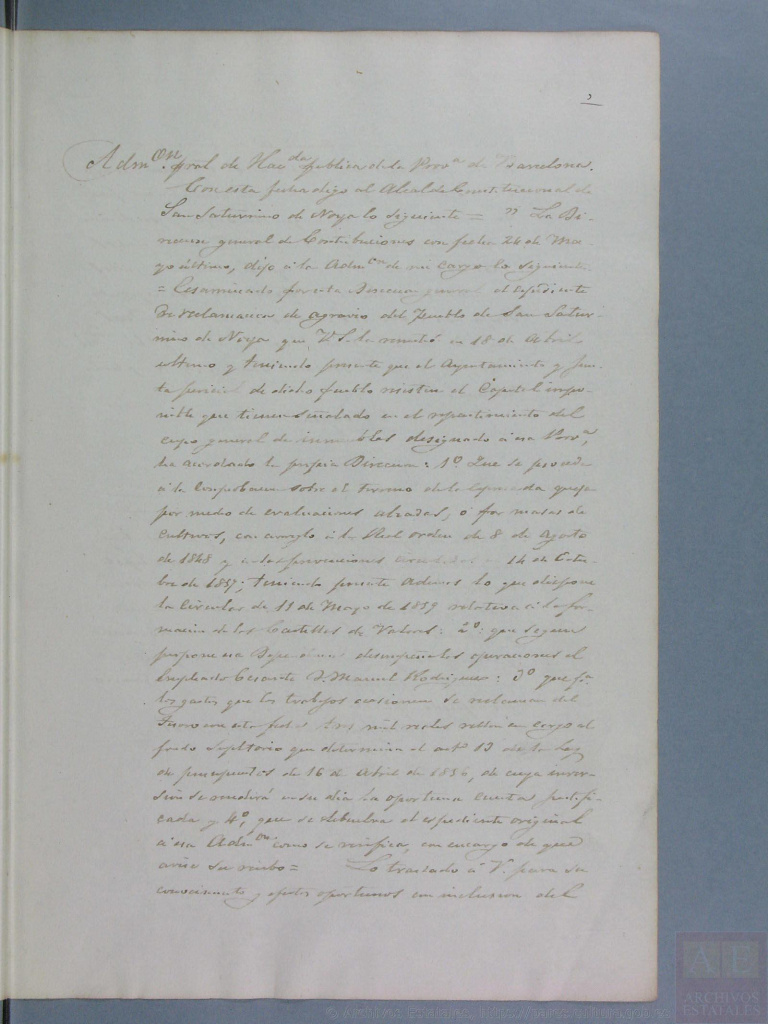 Admon. pral de Hacda publica de la Prova de Barcelona.
Con esta fecha digo al Alcalde Constitucional de
San Saturnino de Noya lo siguiente = " La Di-
reccion general de Contribuciones con fecha 26 de Ma-
yo último, dijo á la Admcn de mi cargo lo siguiente
= Ecsaminado por esta Direccion general el expediente
de reclamacion de agravio del Pueblo de San Satur-
nino de Noya que V.S. remitió en 18 de Abril
ultimo y teniendo presente que el Ayuntamiento y Jun-
ta pericial de dicho pueblo el Capital impo-
nible que tienen señalado en el repartimiento del
cupo general de inmuebles designado á esa Prova,
ha acordado la propia Direccion: 1º Que se proceda
á la comprobacion sobre el terreno de la espresada queja
por medio de evaluaciones alzadas, ó por masas de
cultivos, con arreglo á la Real orden de 8 de Agosto
de 1848 y á las prevenciones 14 de Octu-
bre de 1857; teniendo presente ademas lo que dispone
la Circular de 13 de Mayo de 1859 relativa á la for-
macion de las Cartillas de Valores: 2º: que segun
propone esa Dependencia desempeñe las operaciones el
Empleado Cesante D. Manuel Rodriguez: 3º que pa
los gastos que los trabajos ocasionen se reclaman del
Tesoro con esta fecha tres mil reales vellon con cargo al
fondo supletorio que determina el artº 13 de la Ley
de presupuestos de 16 de Abril de 1856, de cuya inver-
sion se rendirá en su dia la oportuna cuenta justifi-
cada y 4º, que se debuelva el espediente original
á esa Admcn como se verifica, con encargo de que
avise su recibo = Lo traslado á V. para su
conocimiento y efectos oportunos con inclusion del
ARCHIVOS
ESTATALES